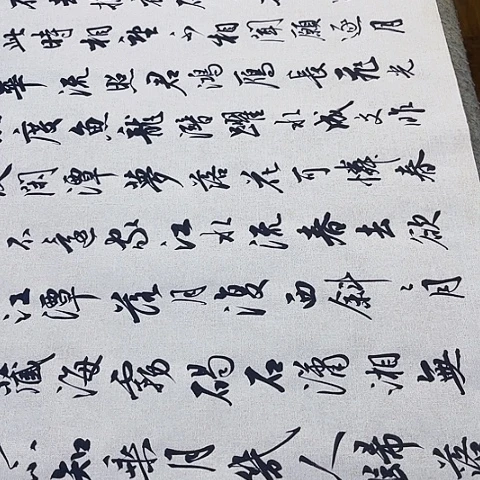 此時相望不相聞願逐月
華流照君鴻雁長飛光
度魚龍潛躍水成文昨
閑潭夢落花可憐春
不還家江水流春去欲
江潭落月復西斜〻月
藏海霧碣石瀟湘無
不知乘月幾人歸落